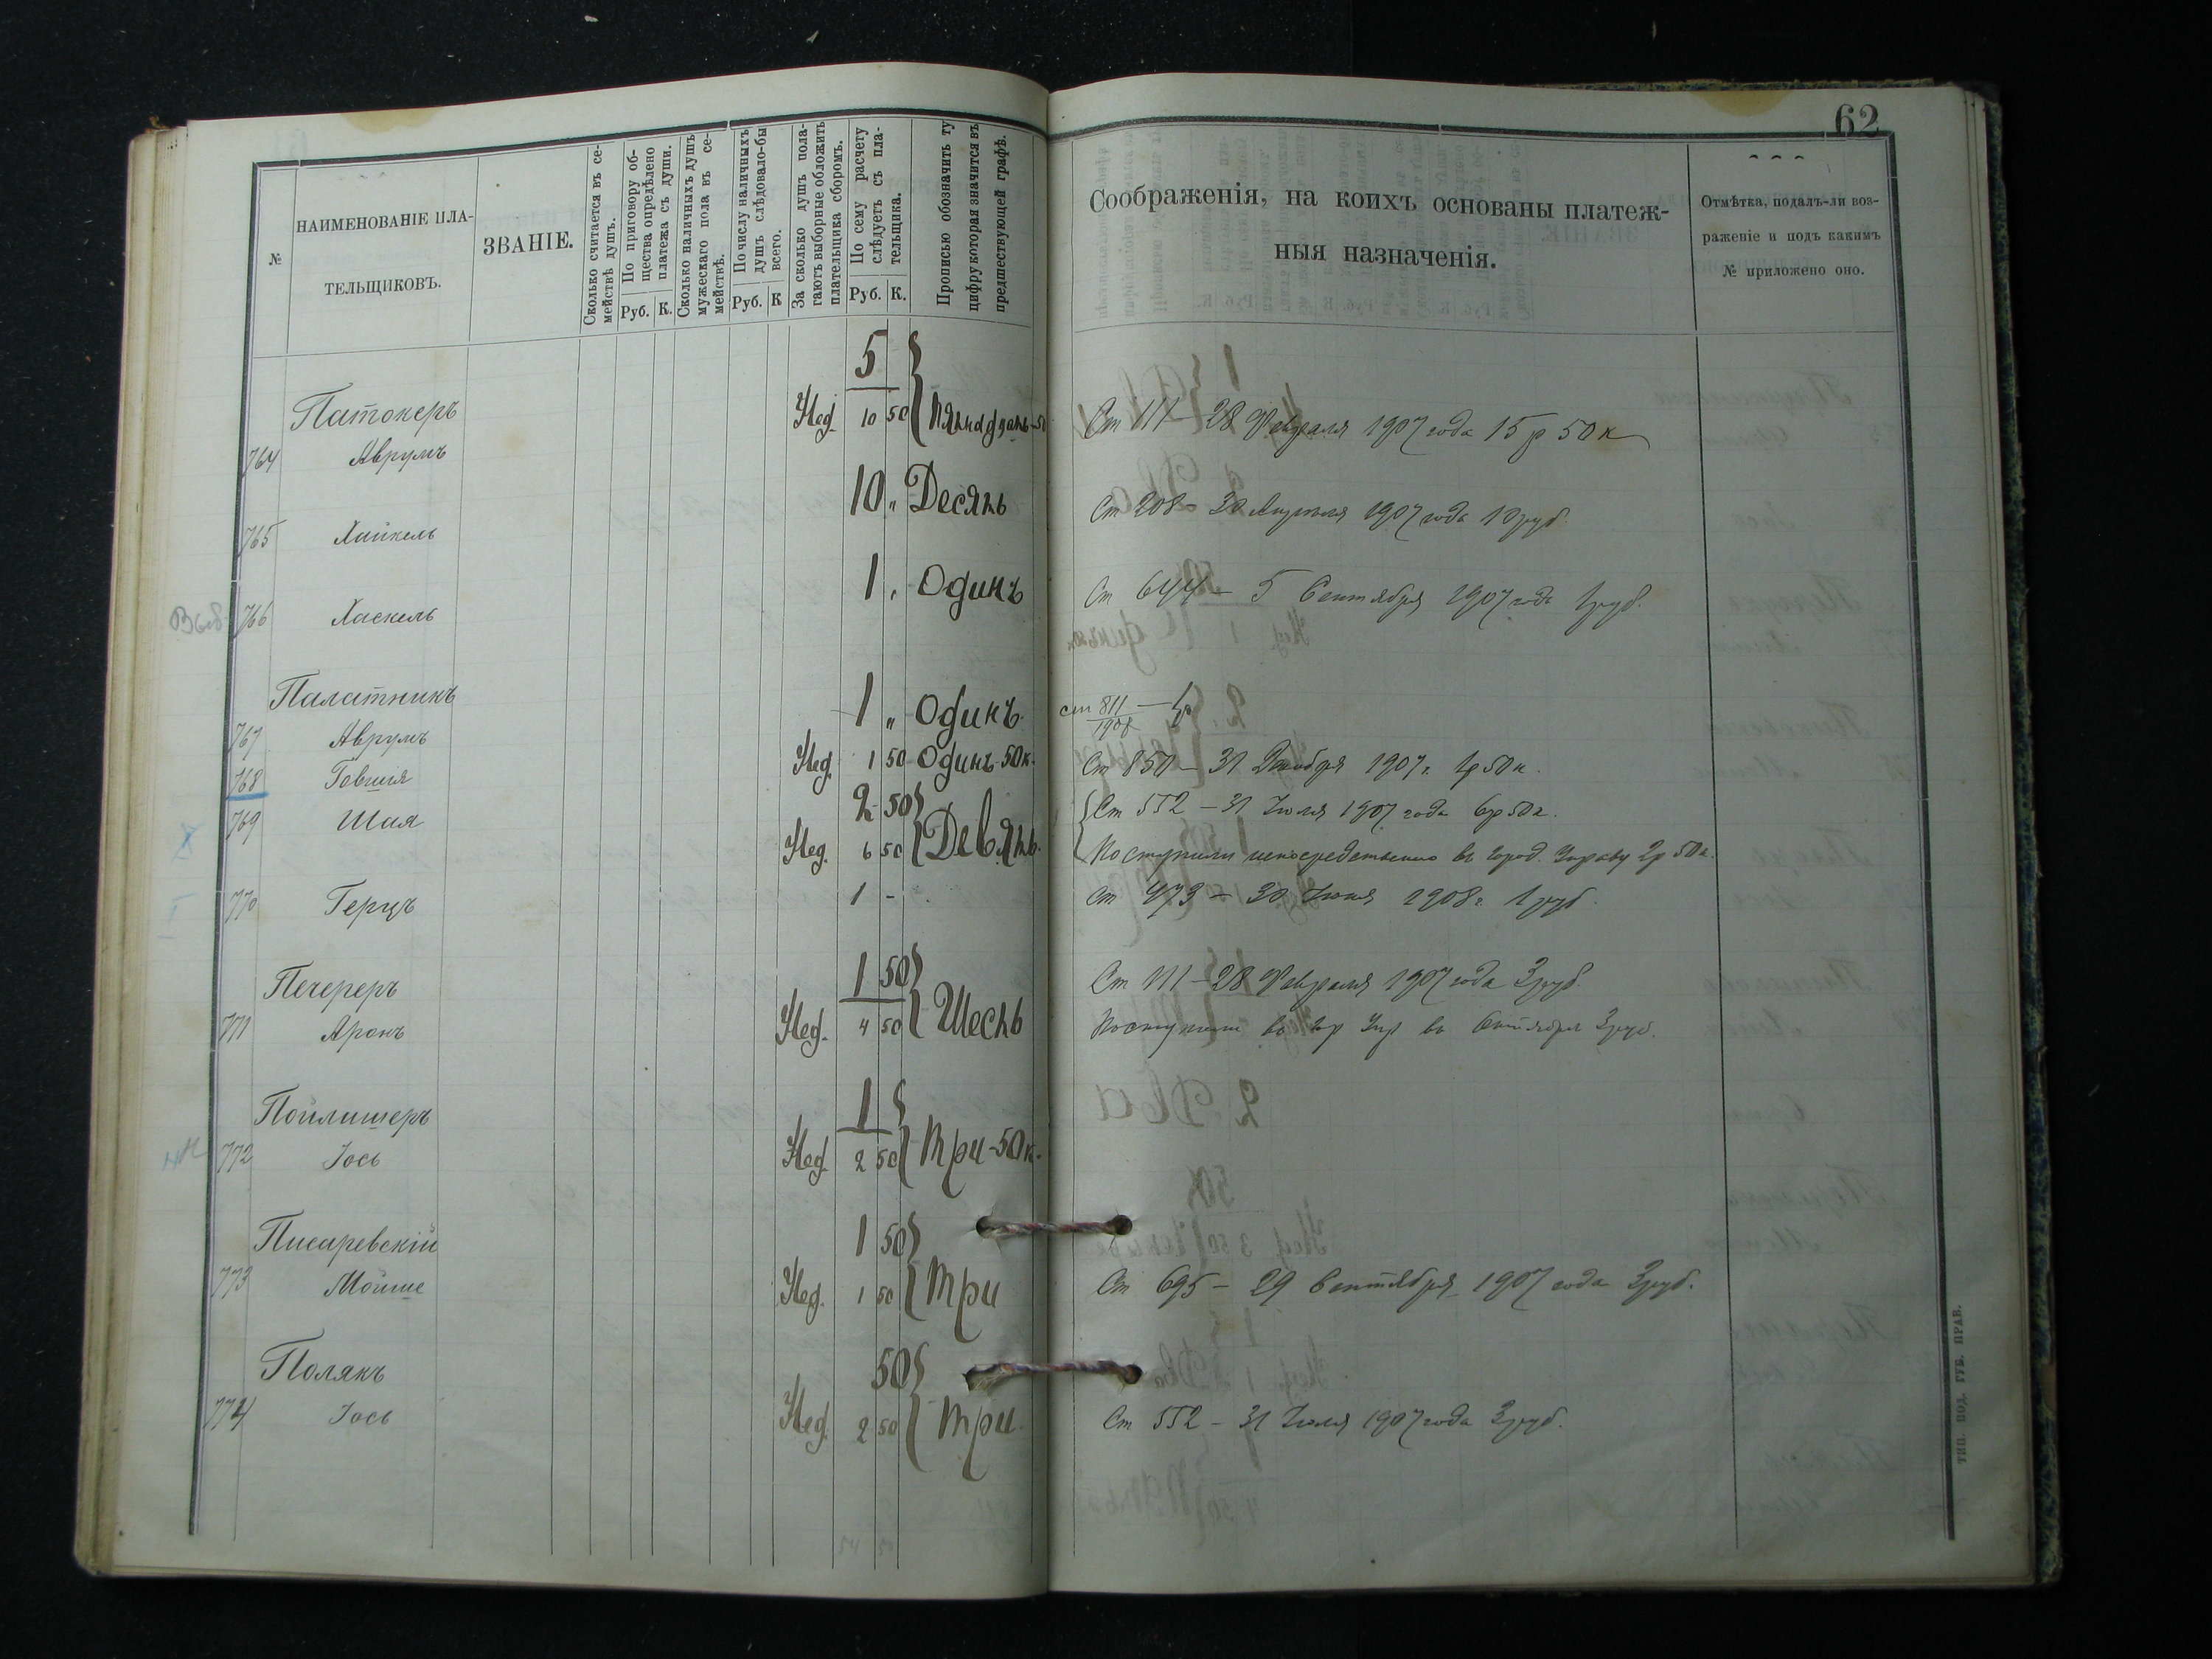 62
№
НАИМЕНОВАНІЕ ПЛА-
ТЕЛЬЩИКОВЪ.
ЗВАНІЕ.
Сколько считается въ се-
мействѣ душъ.
По приговору об-
щества опредѣлено
платежа съ души.
Руб. К.
Сколько наличныхъ душъ
мужескаго пола въ се-
мействѣ.
По числу наличныхъ
душъ слѣдовало-бы
всего.
Руб. К
За сколько душъ пола-
гаютъ выборные обложить
плательщика сборомъ.
По сему расчету
слѣдуетъ съ пла-
тельщика.
Руб. К.
Прописью обозначить ту
цифру которая значится въ
предшествующей графѣ.
Соображенія, на коихъ основаны платеж-
ныя назначенія.
Отмѣтка, подалъ-ли воз-
раженіе и подъ какимъ
№ приложено оно.
5
Патокеръ Нед. 10 50 Ст 111 – 28 Февраля 1907 года 15 р 50 к
764 Аврумъ
10 „ Десять
765 Хайкель Ст 208 – 30 Апреля 1907 года 10 руб.
1 „ Одинъ
Выб 766 Хаскель Ст 644 – 5 Сентября 1907 года 1 руб.
Палатникъ
767 Аврумъ 1 „ Одинъ ст 811 – 1р
1908
768 Говшія Нед. 1 50 Одинъ 50 к. Ст 850 – 31 Декабря 1907 г. 1р 50 к.
769 Шая 2 50 Ст 552 – 31 Июля 1907 года 6р 50 к.
Нед. 6 50 Девять Поступили непосредственно въ город. Управу 2р 50к.
770 Герцъ 1 - Ст 473 – 30 Июня 1908 г. 1 руб.
Печереръ 1 50 Ст 111 – 28 Февраля 1907 года 3 руб.
771 Аронъ Нед. 4 50 Шесть Поступили въ гор Упр въ Сентября 3 руб.
Пойлишеръ 1
772 Іось Нед. 2 50 Три-50 к.
Писаревскій 1 50
773 Мойше Нед. 1 50 Три Ст 695 – 29 Сентября 1907 года 3 руб.
Полякъ 50
774 Іось Нед. 2 50 Три. Ст 552 – 31 Июля 1907 года 3 руб.
ТИП. ПОД. ГУБ. ПРАВ.